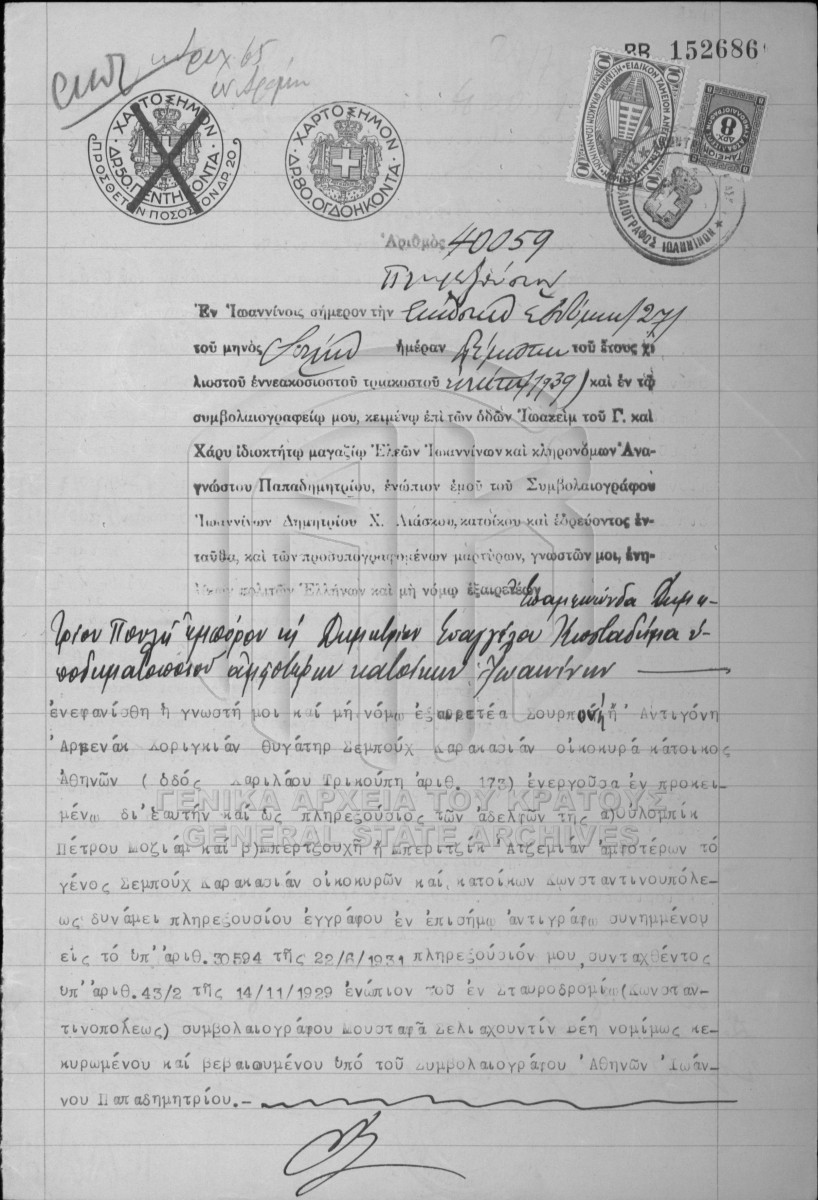 ΒΒ 152686
ΧΑΡΤΟΣΗΜΟΝ
ΔΡ.50.ΠΕΝΤΗΚΟΝΤΑ
ΠΡΟΣΘΕΤΟΝ ΠΟΣΟΣΤΟΝ ΔΡ.20
ΧΑΡΤΟΣΗΜΟΝ
ΔΡ.80.ΟΓΔΟΗΚΟΝΤΑ
8
ΣΥΜΒΟΛΑΙΟΓΡΑΦΟΣ ΙΩΑΝΝΙΝΩΝ
Ἀριθμὸς 40059
Ἐν Ἰωαννίνοις σήμερον τὴν εἰκοστὴν ἑβδόμην /27/
τοῦ μηνὸς ἡμέραν τοῦ ἔτους χι
λιοστοῦ ἐννεακοσιοστοῦ τριακοστοῦ ἐνάτου (1939) καὶ ἐν τῷ
συμβολαιογραφείῳ μου, κειμένῳ ἐπὶ τῶν ὁδῶν Ἰωακεὶμ τοῦ Γ. καὶ
Χάρυ ἰδιοκτήτῳ μαγαζίῳ Ἐλεῶν Ἰωαννίνων καὶ κληρονόμων Ἀνα-
γνώστου Παπαδημητρίου, ἐνώπιον ἐμοῦ τοῦ Συμβολαιογράφου
Ἰωαννίνων Δημητρίου Χ. Λιάσκου, κατοίκου καὶ ἑδρεύοντος ἐν-
ταῦθα, καὶ τῶν προσυπογραφομένων μαρτύρων, γνωστῶν μοι, ἐνη-
λίκων πολιτῶν Ἑλλήνων καὶ μὴ νόμῳ ἐξαιρετέων Ἐπαμεινώνδα Δημη-
τρίου ἐμπόρου καὶ Δημητρίου Εὐαγγέλου ὑ-
ποδηματοποιοῦ ἀμφοτέρων κατοίκων Ἰωαννίνων
ἐνεφανίσθη ἡ γνωστή μοι καί μή νόμῳ ἐξαιρετέα Σουρπουὴ ἤ Ἀντιγόνη
Ἀρμενάκ Κοριγκιάν θυγάτηρ Σεμπούχ Καρακασιάν οἰκοκυρά κάτοικος
Ἀθηνῶν ( ὁδός Χαριλάου Τρικούπη ἀριθ. 173) ἐνεργοῦσα ἐν προκει-
μένῳ δι'ἑαυτήν καί ὡς πληρεξούσιος τῶν ἀδελφῶν της α)Οὐλομπίκ
Πέτρου Μοζιάμ καί β)Μπερτζουχῆ ἤ Μπεριτζίκ Ἀτζεμιάν ἀμφοτέρων τό
γένος Σεμπούχ Καρακασιάν οἰκοκυρῶν καί, κατοίκων Κωνσταντινουπόλε-
ως δυνάμει πληρεξουσίου ἐγγράφου ἐν ἐπισήμῳ ἀντιγράφῳ συνημμένου
εἰς τό ὑπ'ἀριθ.30594 τῆς 22/6/1931 πληρεξούσιόν μου,συνταχθέντος
ὑπ'ἀριθ.43/2 τῆς 14/11/1929 ἐνώπιον τοῦ ἐν Σταυροδρομίῳ(Κωνσταν-
τινοπόλεως) συμβολαιογράφου Μουσταφᾶ Σελιαχουντίν Βέη νομίμως κε-
κυρωμένου καί βεβαιουμένου ὑπό τοῦ Συμβολαιογράφου Ἀθηνῶν Ἰωάν-
νου Παπαδημητρίου.-
ΓΕΝΙΚΑ ΑΡΧΕΙΑ ΤΟΥ ΚΡΑΤΟΥΣ
GENERAL STATE ARCHIVES